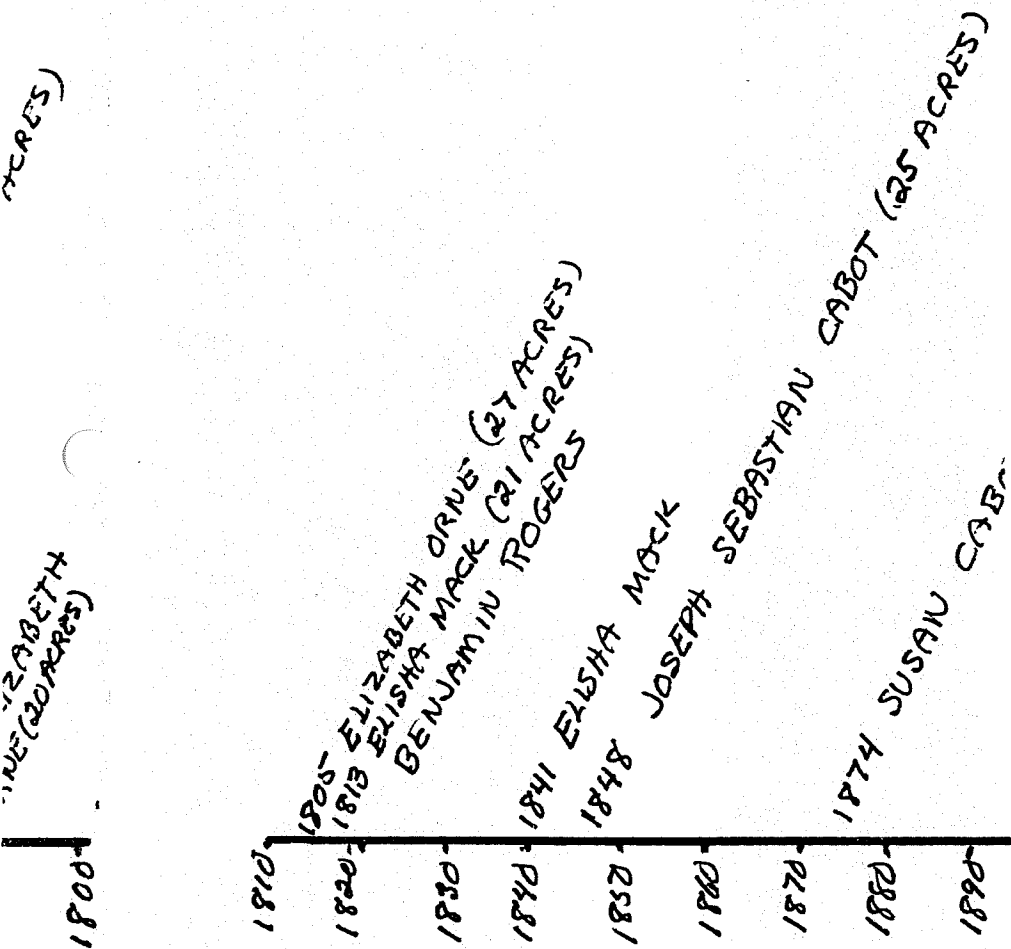 ACRES)
NE (20 ACRES)
1805 ELIZABETH ORNE (27 ACRES)
1813 ELISHA MACK (21 ACRES)
BENJAMIN ROGERS
1841 ELISHA MACK
1848 JOSEPH SEBASTIAN CABOT (25 ACRES)
1874 SUSAN
1800 1810 1820 1830 1840 1850 1860 1870 1880 1890